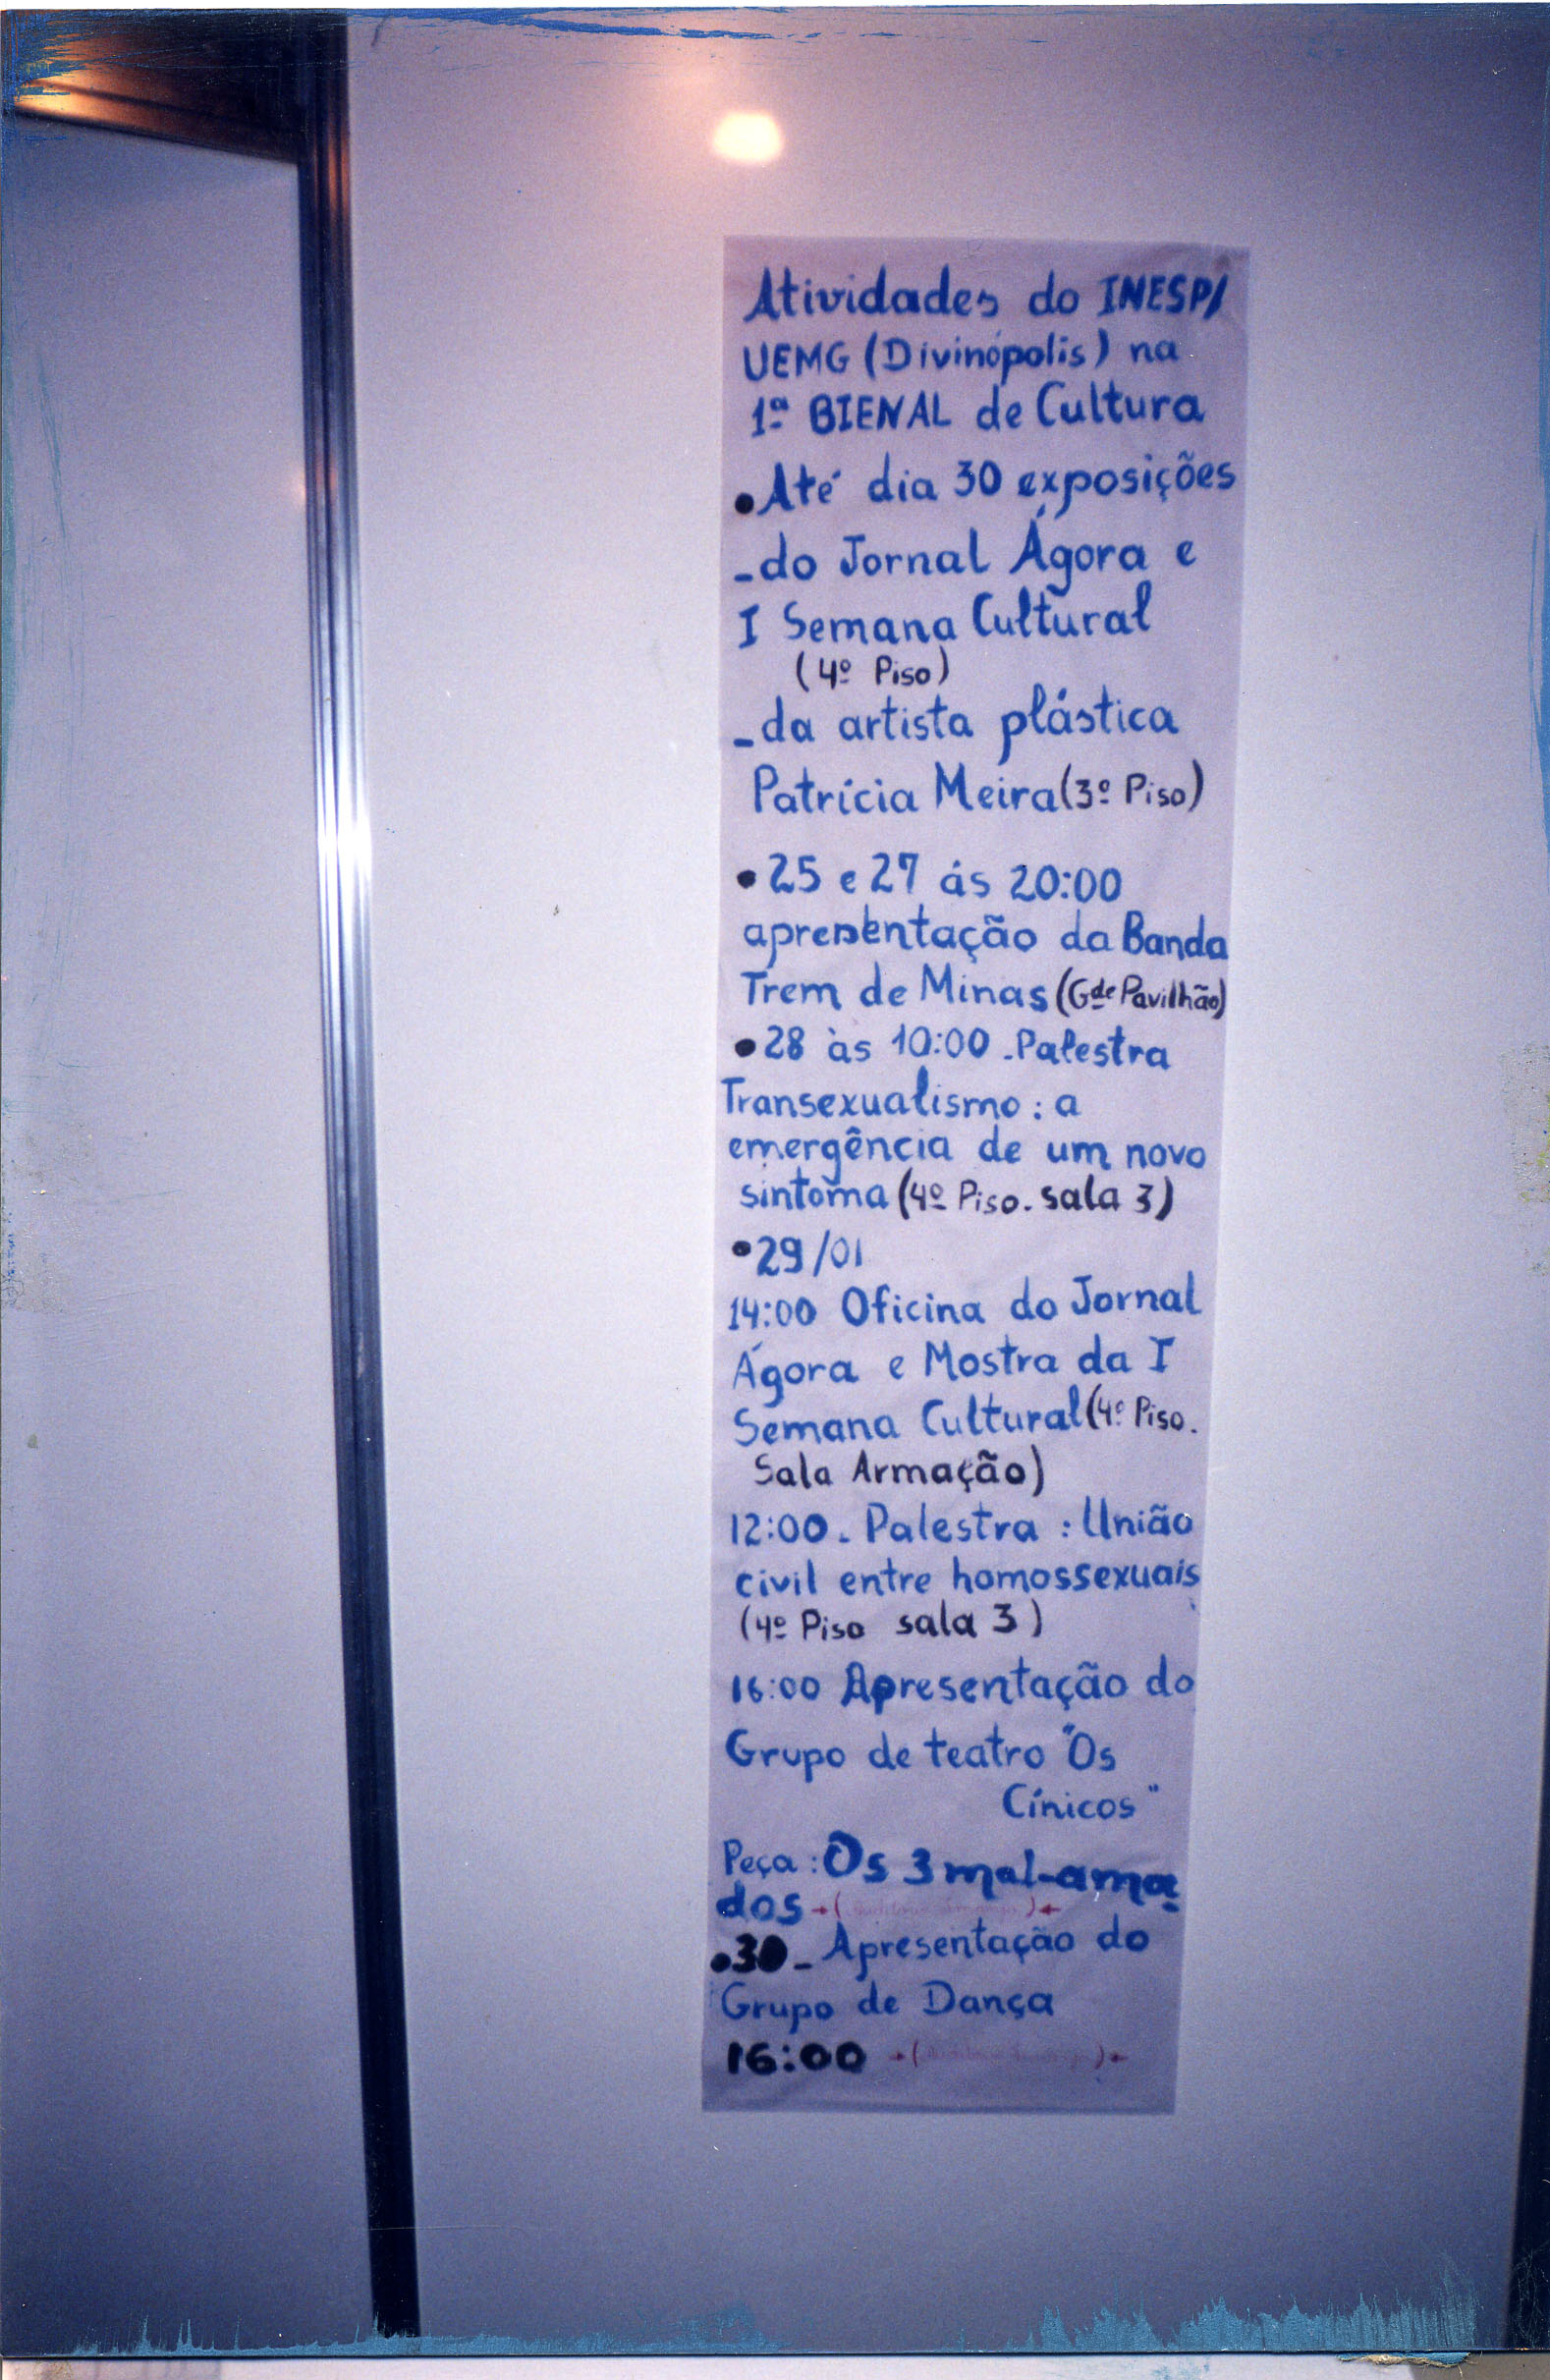 Atividades do INESP/
UEMG (Divinópolis) na
1ª BIENAL de Cultura
•Até dia 30 exposições
-do Jornal Ágora e
I Semana Cultural
(4º Piso)
-da artista plástica
Patrícia Meira (3º Piso)
•25 e 27 ás 20:00
apresentação da Banda
Trem de Minas (Gde Pavilhão)
•28 às 10:00 - Palestra
Transexualismo: a
emergência de um novo
sintoma (4º Piso. sala 3)
•29/01
14:00 Oficina do Jornal
Ágora e Mostra da I
Semana Cultural (4º Piso.
Sala Armação)
12:00 - Palestra : União
civil entre homossexuais
(4º Piso sala 3)
16:00 Apresentação do
Grupo de teatro "Os
Cínicos"
Peça : Os 3 mal-ama
dos → ( ) ←
•30 - Apresentação do
Grupo de Dança
16:00 → ( ) ←